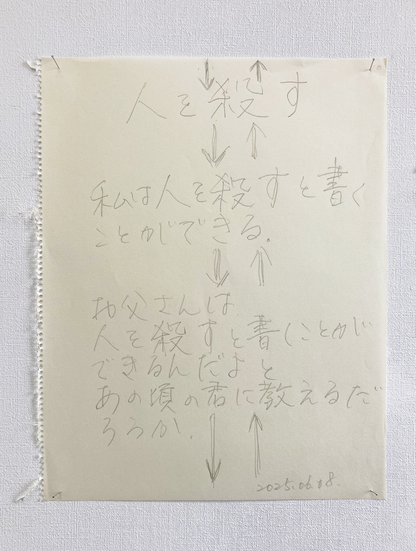 人を殺す
私は人を殺すと書く
ことができる.
お父さんは
人を殺すと書くことが
できるんだよと
あの頃の君に教えるだ
ろうか.
2025.06.08.